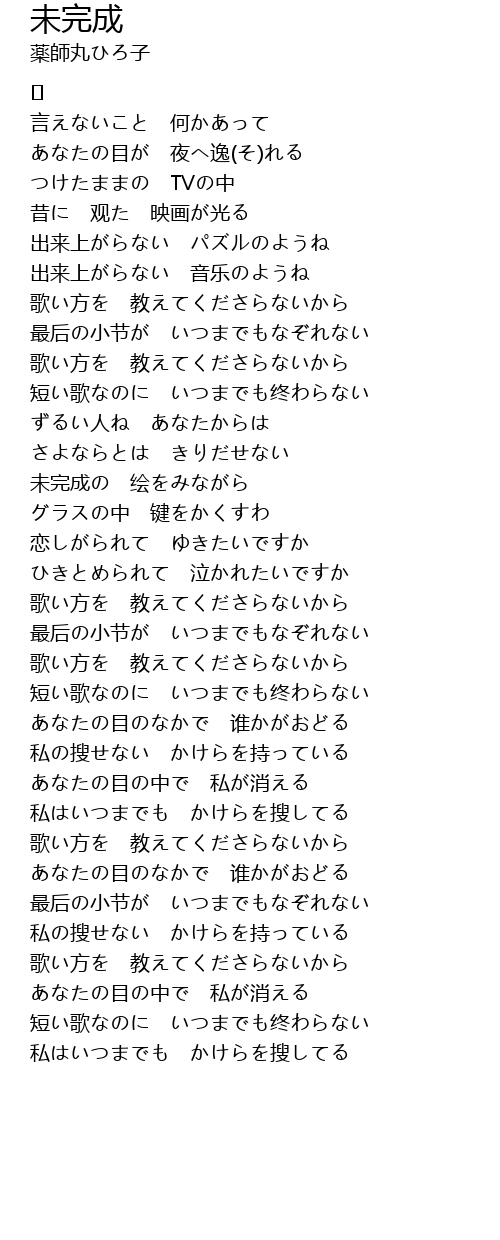 未完成
薬師丸ひろ子
[]
言えないこと　何かあって
あなたの目が　夜へ逸(そ)れる
つけたままの　TVの中
昔に　观た　映画が光る
出来上がらない　パズルのようね
出来上がらない　音乐のようね
歌い方を　教えてくださらないから
最后の小节が　いつまでもなぞれない
歌い方を　教えてくださらないから
短い歌なのに　いつまでも终わらない
ずるい人ね　あなたからは
さよならとは　きりだせない
未完成の　绘をみながら
グラスの中　键をかくすわ
恋しがられて　ゆきたいですか
ひきとめられて　泣かれたいですか
歌い方を　教えてくださらないから
最后の小节が　いつまでもなぞれない
歌い方を　教えてくださらないから
短い歌なのに　いつまでも终わらない
あなたの目のなかで　谁かがおどる
私の搜せない　かけらを持っている
あなたの目の中で　私が消える
私はいつまでも　かけらを搜してる
歌い方を　教えてくださらないから
あなたの目のなかで　谁かがおどる
最后の小节が　いつまでもなぞれない
私の搜せない　かけらを持っている
歌い方を　教えてくださらないから
あなたの目の中で　私が消える
短い歌なのに　いつまでも终わらない
私はいつまでも　かけらを搜してる